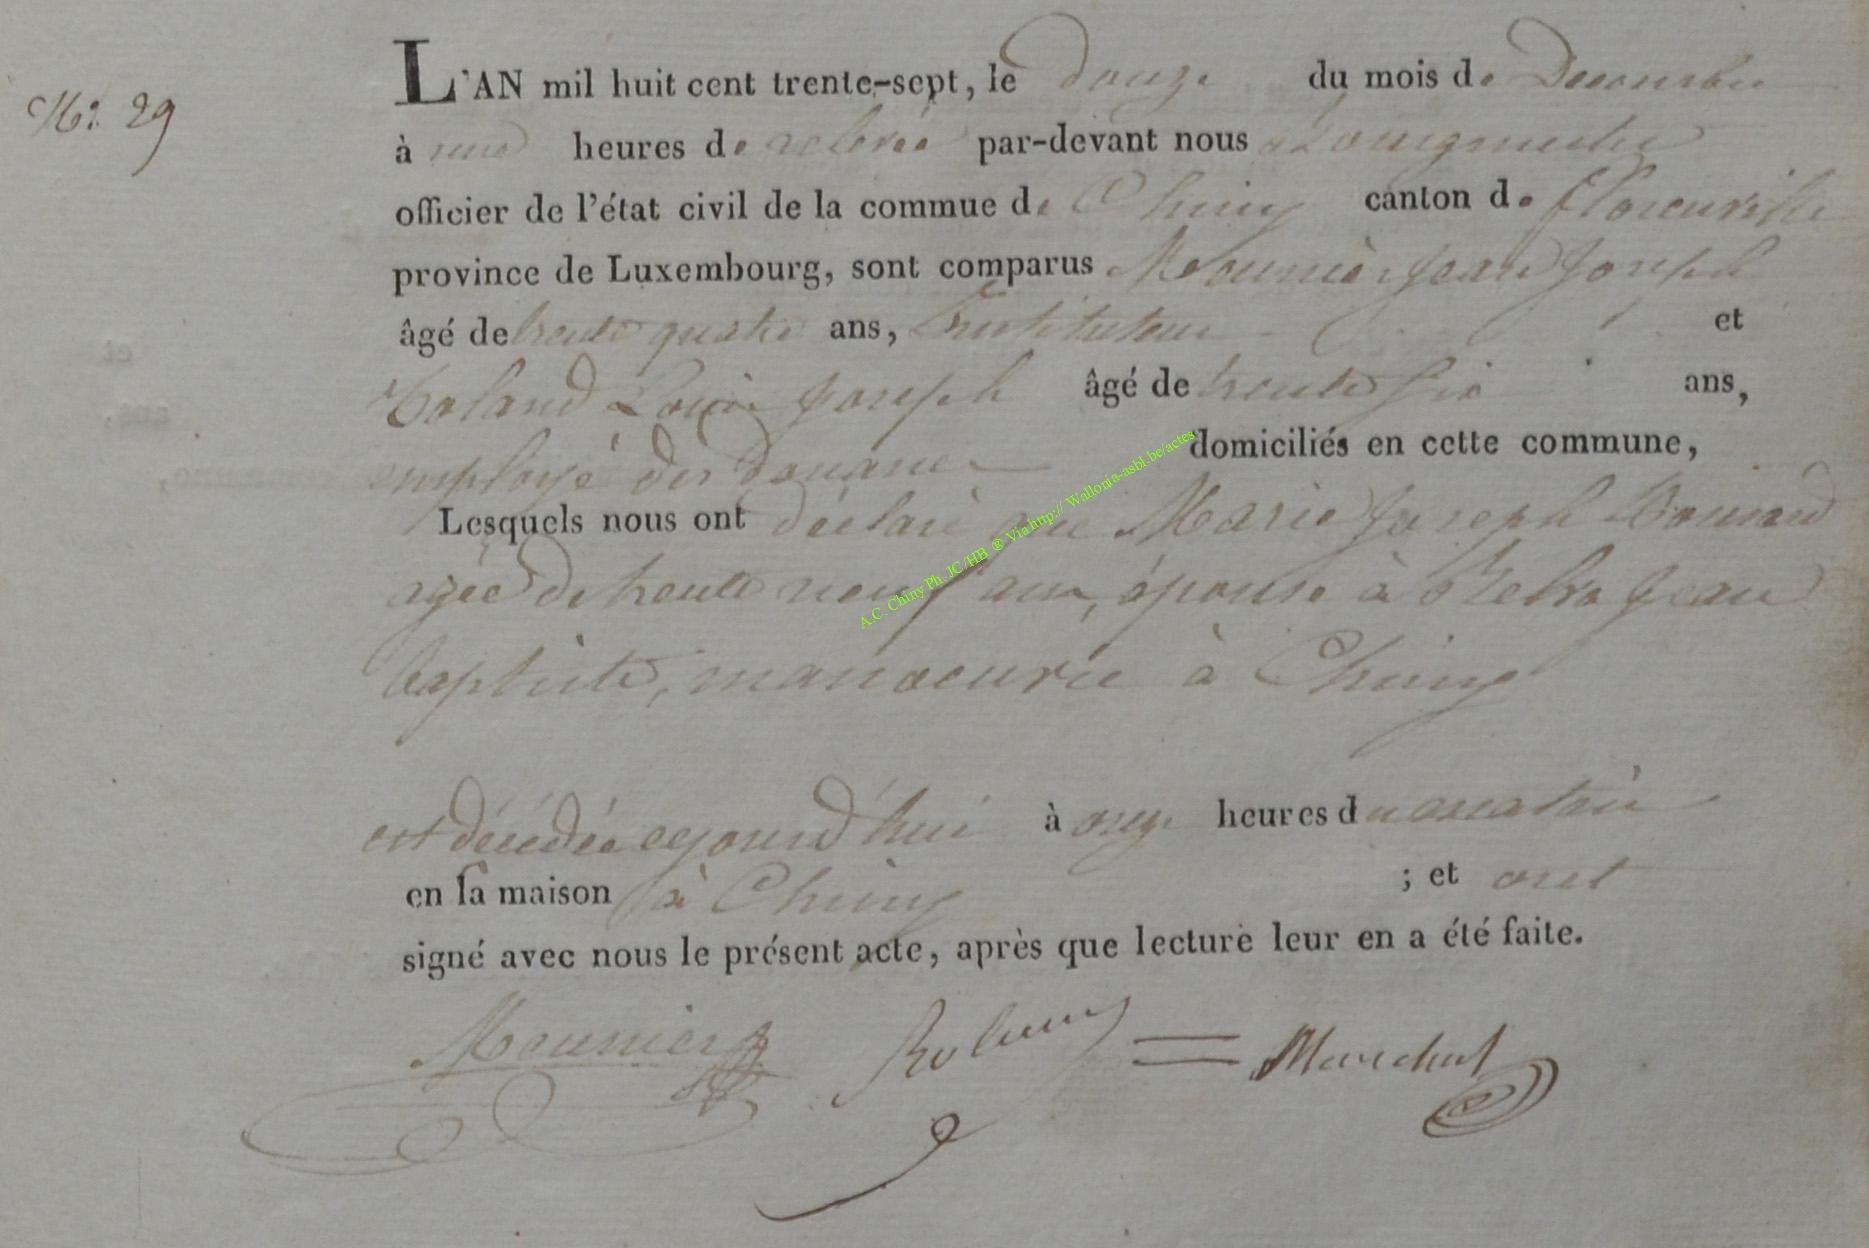 N.° 29
L'AN mil huit cent trente-sept, le douze du mois de Decembre
à une heures de relevée par-devant nous Bourgmestre
officier de l'état civil de la commue de Chiny canton de florenville
province de Luxembourg, sont comparus Meunier jean joseph
âgé de trente quatre ans, Instituteur et
Roland Louis joseph âgé de trente six ans,
employé des douanes domiciliés en cette commune,
Lesquels nous ont déclaré que Marie joseph
agée de trente neuf ans, épouse à jean
baptiste, manoeuvre à Chiny
est décédée cejourd'hui à onze heures du
en sa maison à Chiny ; et ont
signé avec nous le présent acte, après que lecture leur en a été faite.
Meunier = Marechal
A.C. Chiny Ph. JC/HB ® Via http:// Wallonia-asbl.be/actes